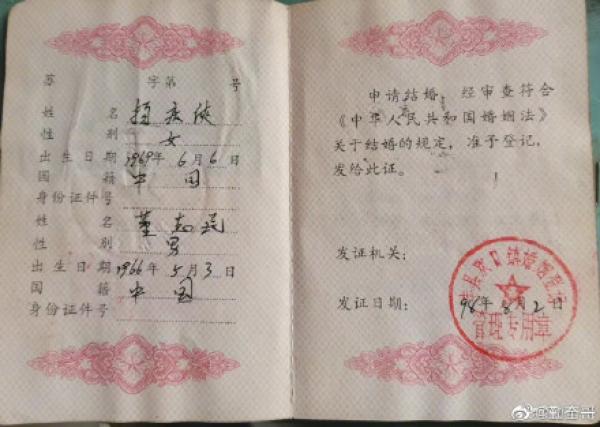 苏 字第 号
姓 名 杨庆侠
性 别 女
出生日期 1969年6月6日
国 籍 中国
身份证件号
姓 名 董志民
性 别 男
出生日期 1966年5月3日
国 籍 中国
身份证件号
申请结婚,经审查符合
《中华人民共和国婚姻法》
关于结婚的规定,准予登记,
发给此证。
发证机关:
发证日期: 98年8月2日
县欢口镇婚姻登记
管理专用章